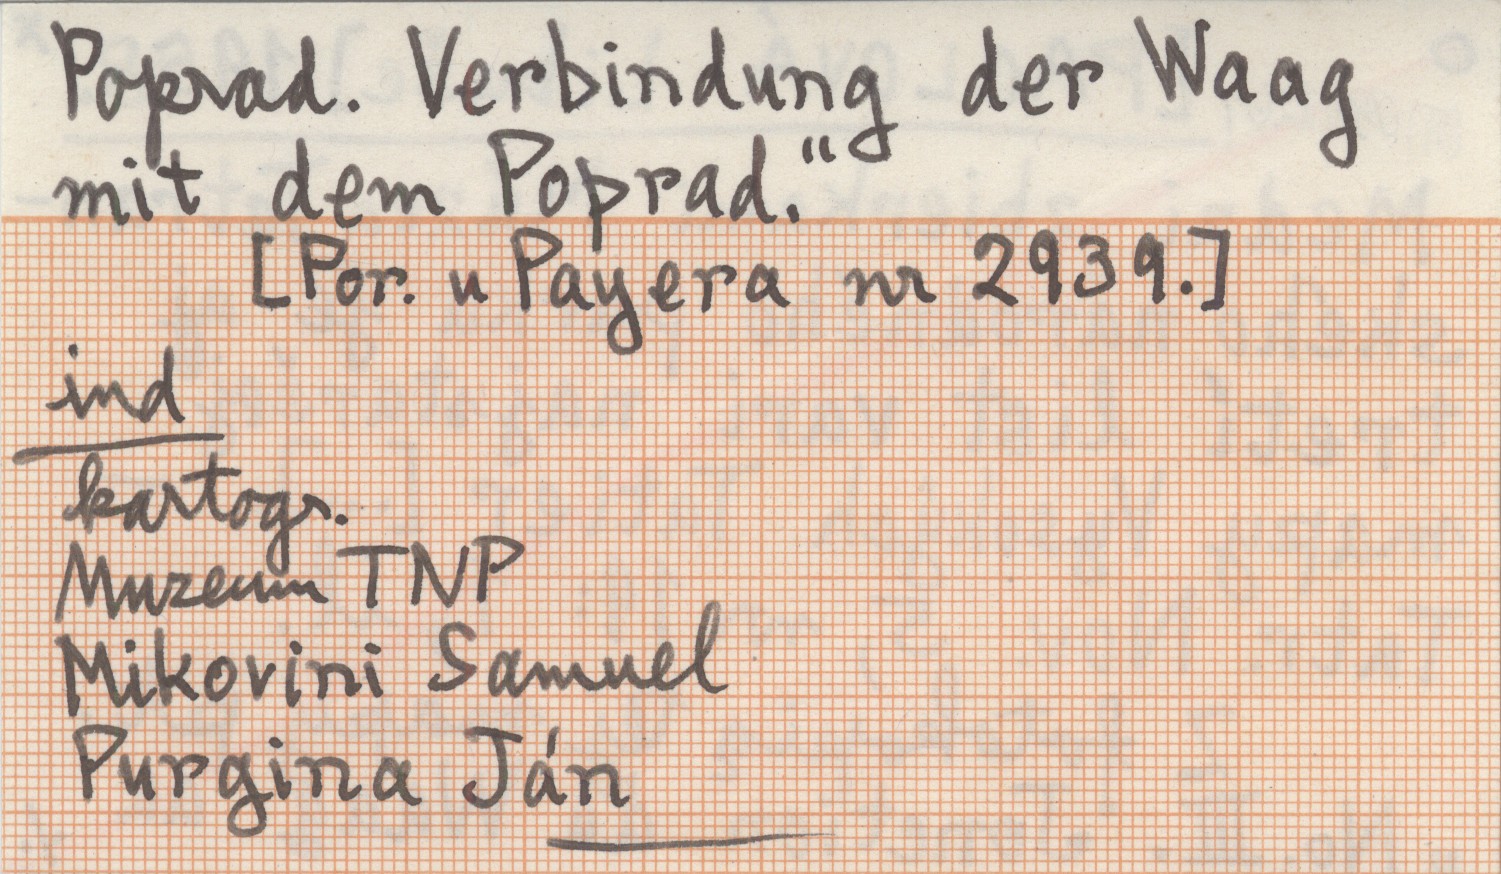 Poprad. Verbindung der Waag
mit dem Poprad."
[Por. u Payera nr 2939.]
ind
kartogr.
Muzeum TNP
Mikovini Samuel
Purgina Ján